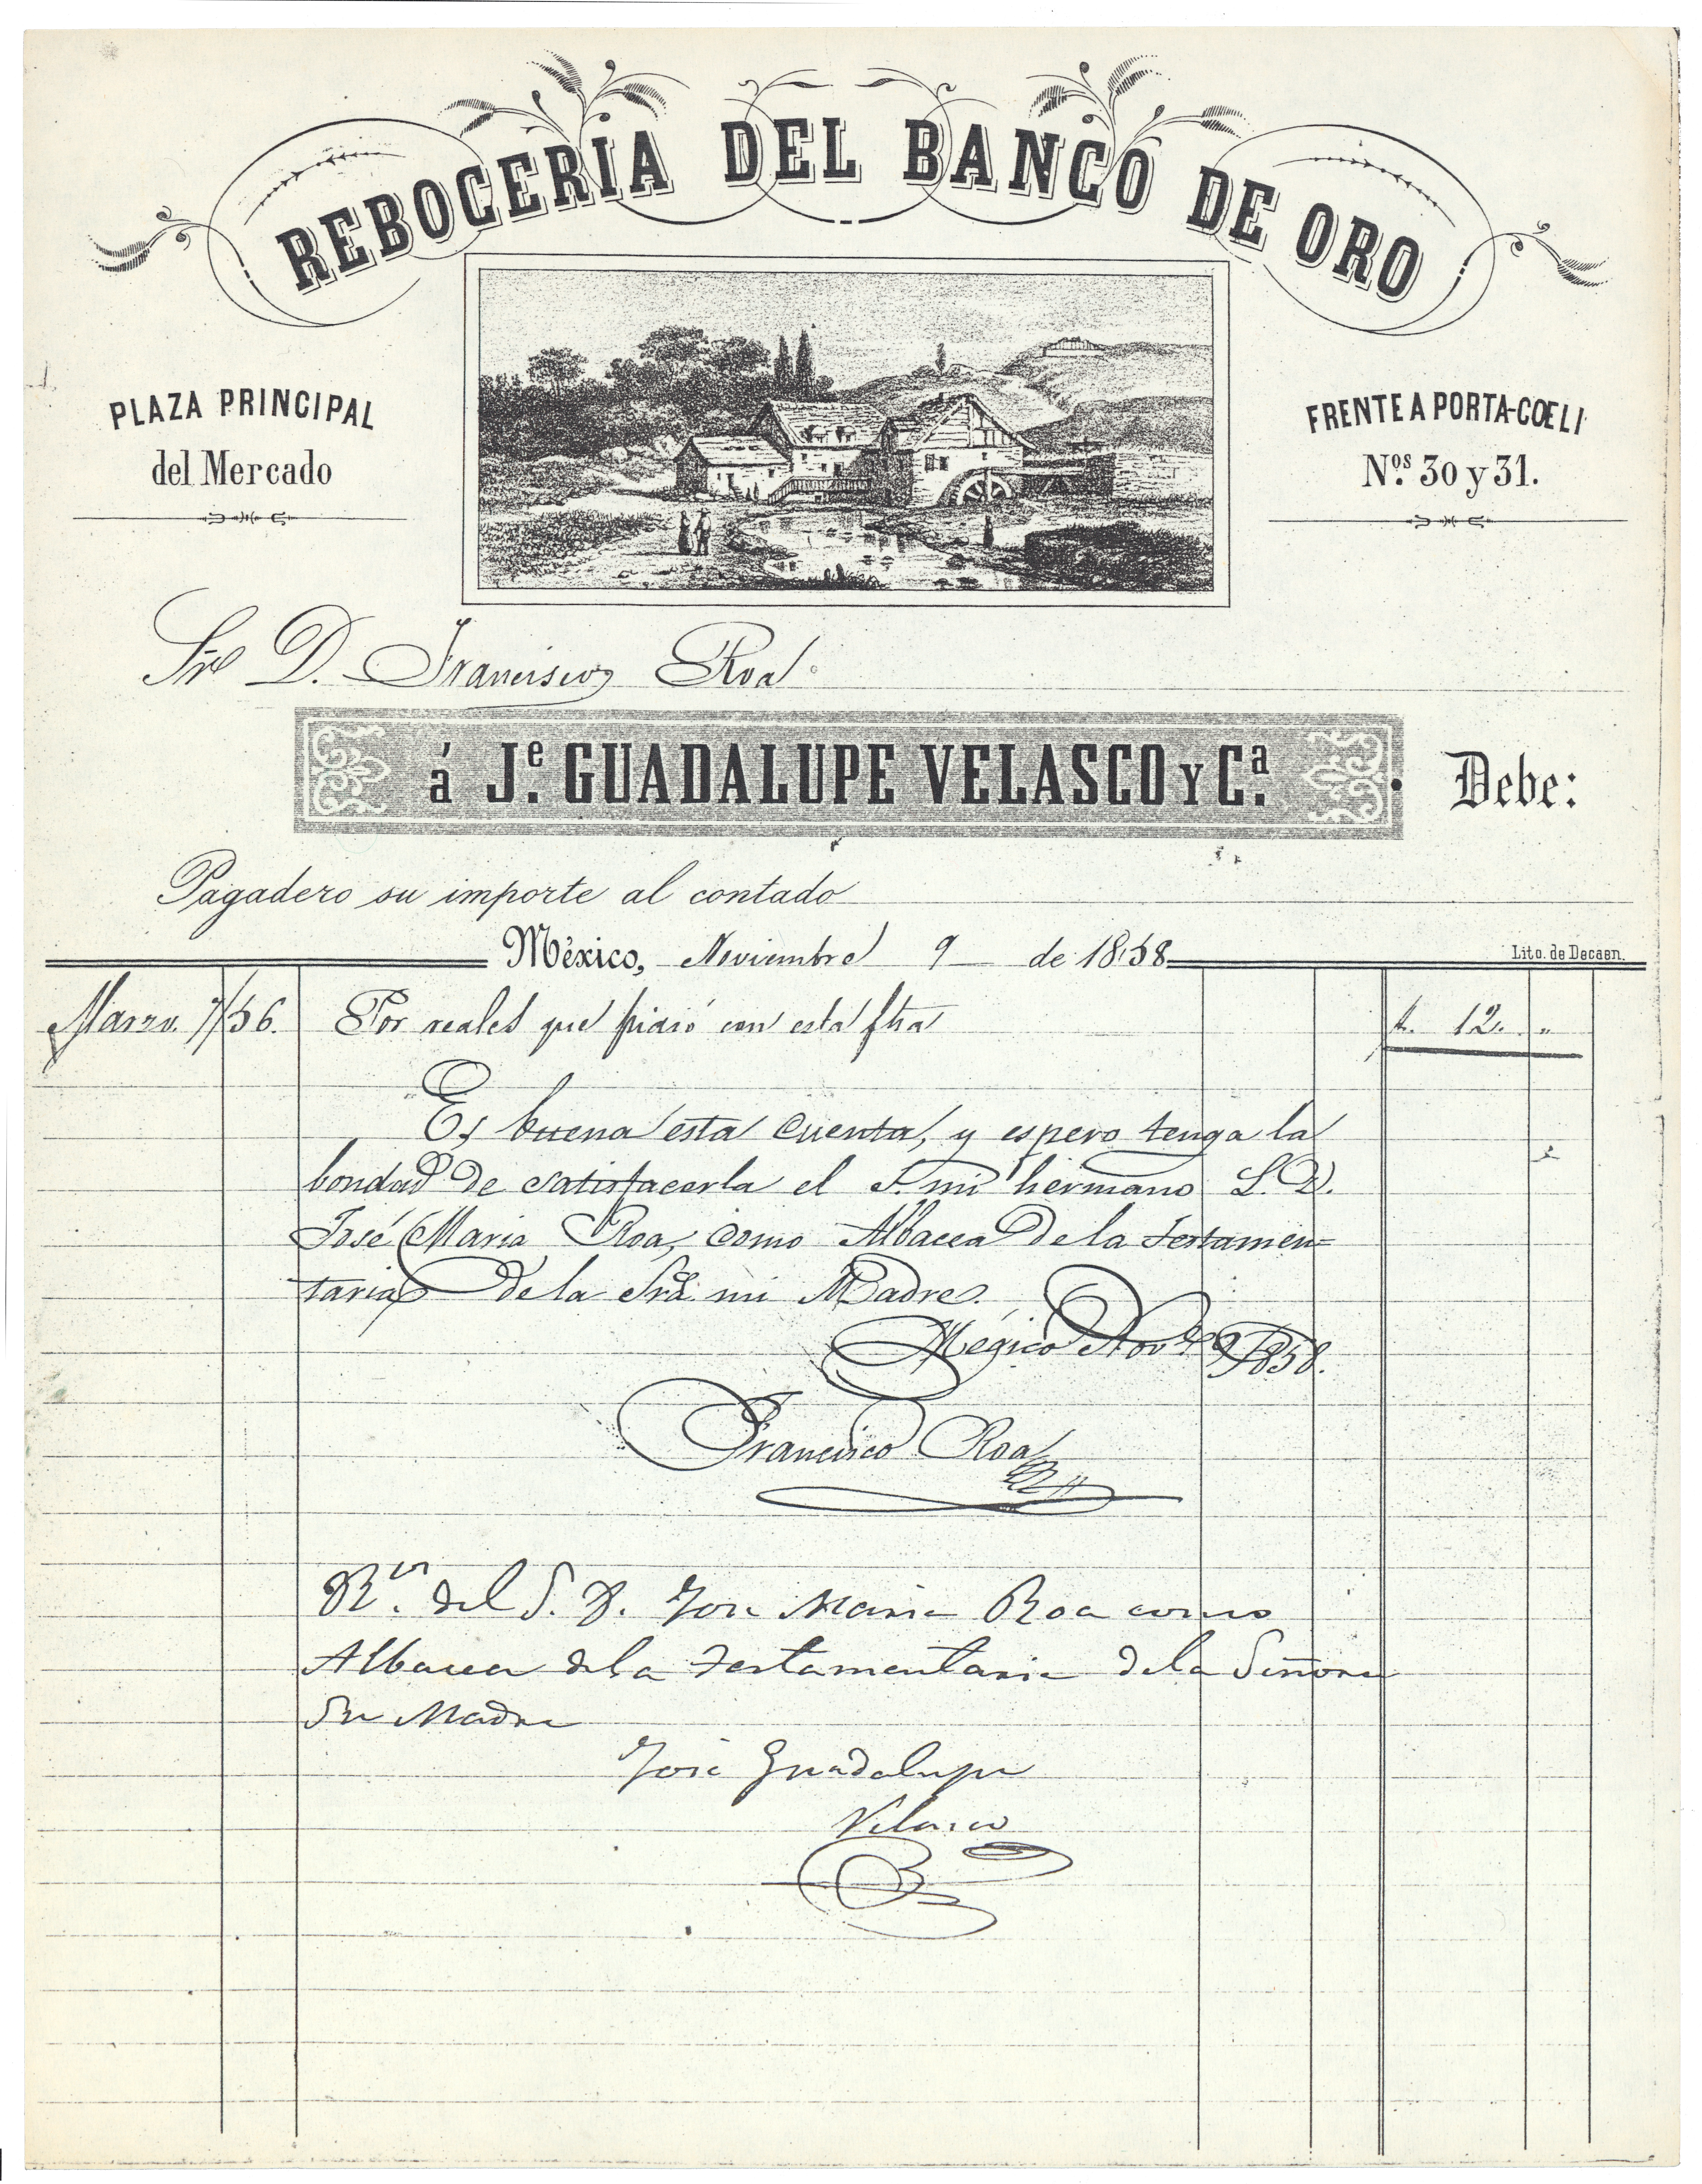 REBOCERIA DEL BANCO DE ORO
PLAZA PRINCIPAL
del Mercado
FRENTE A PORTA-COELI
Nos. 30 y 31.
Sr D. Francisco Roa
á Je. GUADALUPE VELASCO Y Ca. Debe:
Pagadero su importe al contado
México, Noviembre 9 de 1858
Lito. de Decaen.
Marzo. 7/56. Por reales que pidió con esta fha 12. "
Es buena esta cuenta, y espero tenga la
bondad de satisfacerla el S. mi hermano S. D.
José Maria Roa, como Albacea de la testamen=
taria de la Sra. mi Madre.
Mégico Nove. 9/1858.
Francisco Roa
Rvi. del S. D. Jose Maria Roa como
Albacea de la Testamentaria de la Señora
Su Madre
José Guadalupe
Velasco